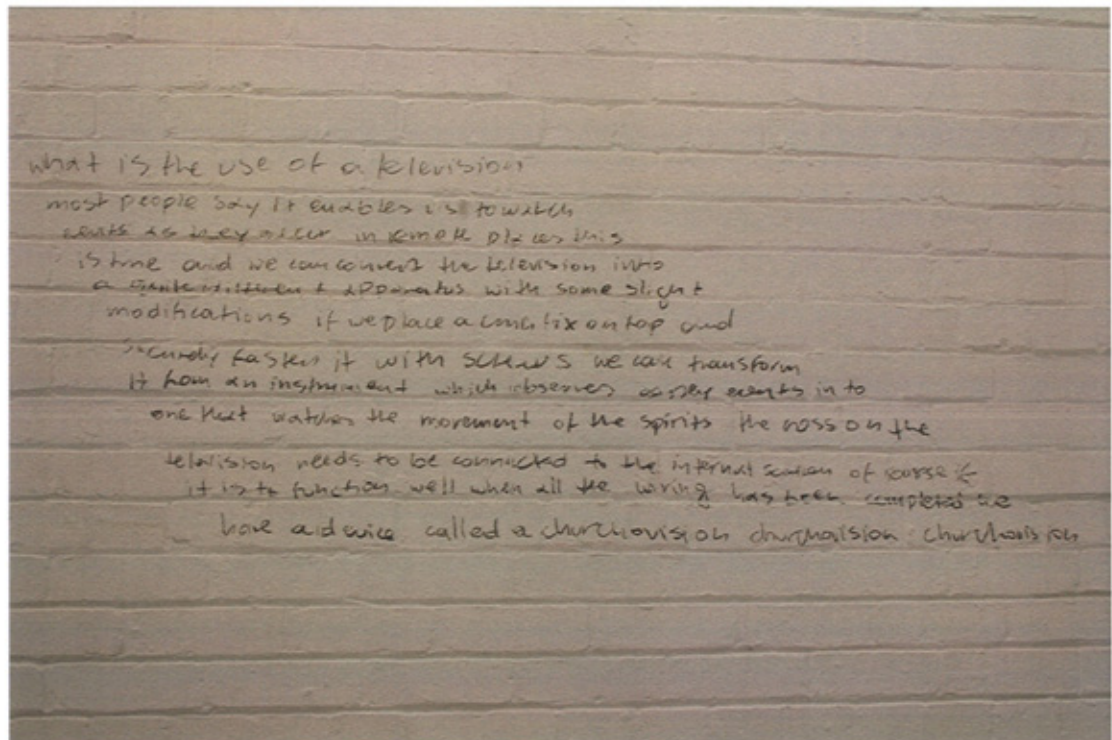 what is the use of a television
most people say it enables us to watch
events as they occur in remote places this
is true and we can convert the television into
a quite different apparatus with some slight
modifications if we place a crucifix on top and
securely fasten it with screws we can transform
it from an instrument which observes events in to
one that watches the movement of the spirits the cross on the
television needs to be connected to the internal screen of course if
it is to function well when all the wiring has been completed we
have a device called a churchovision churchovision churchovision